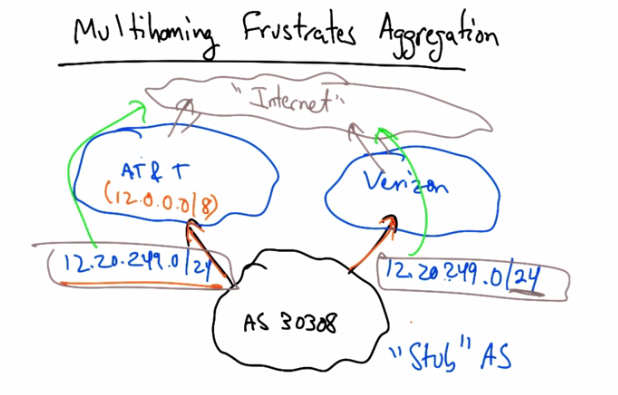 Multihoming Frustrates Aggregation
"Internet"
AT&T
(12.0.0.0/8)
Verizon
12.20.249.0/24
12.20.249.0/24
AS 30308
"Stub" AS